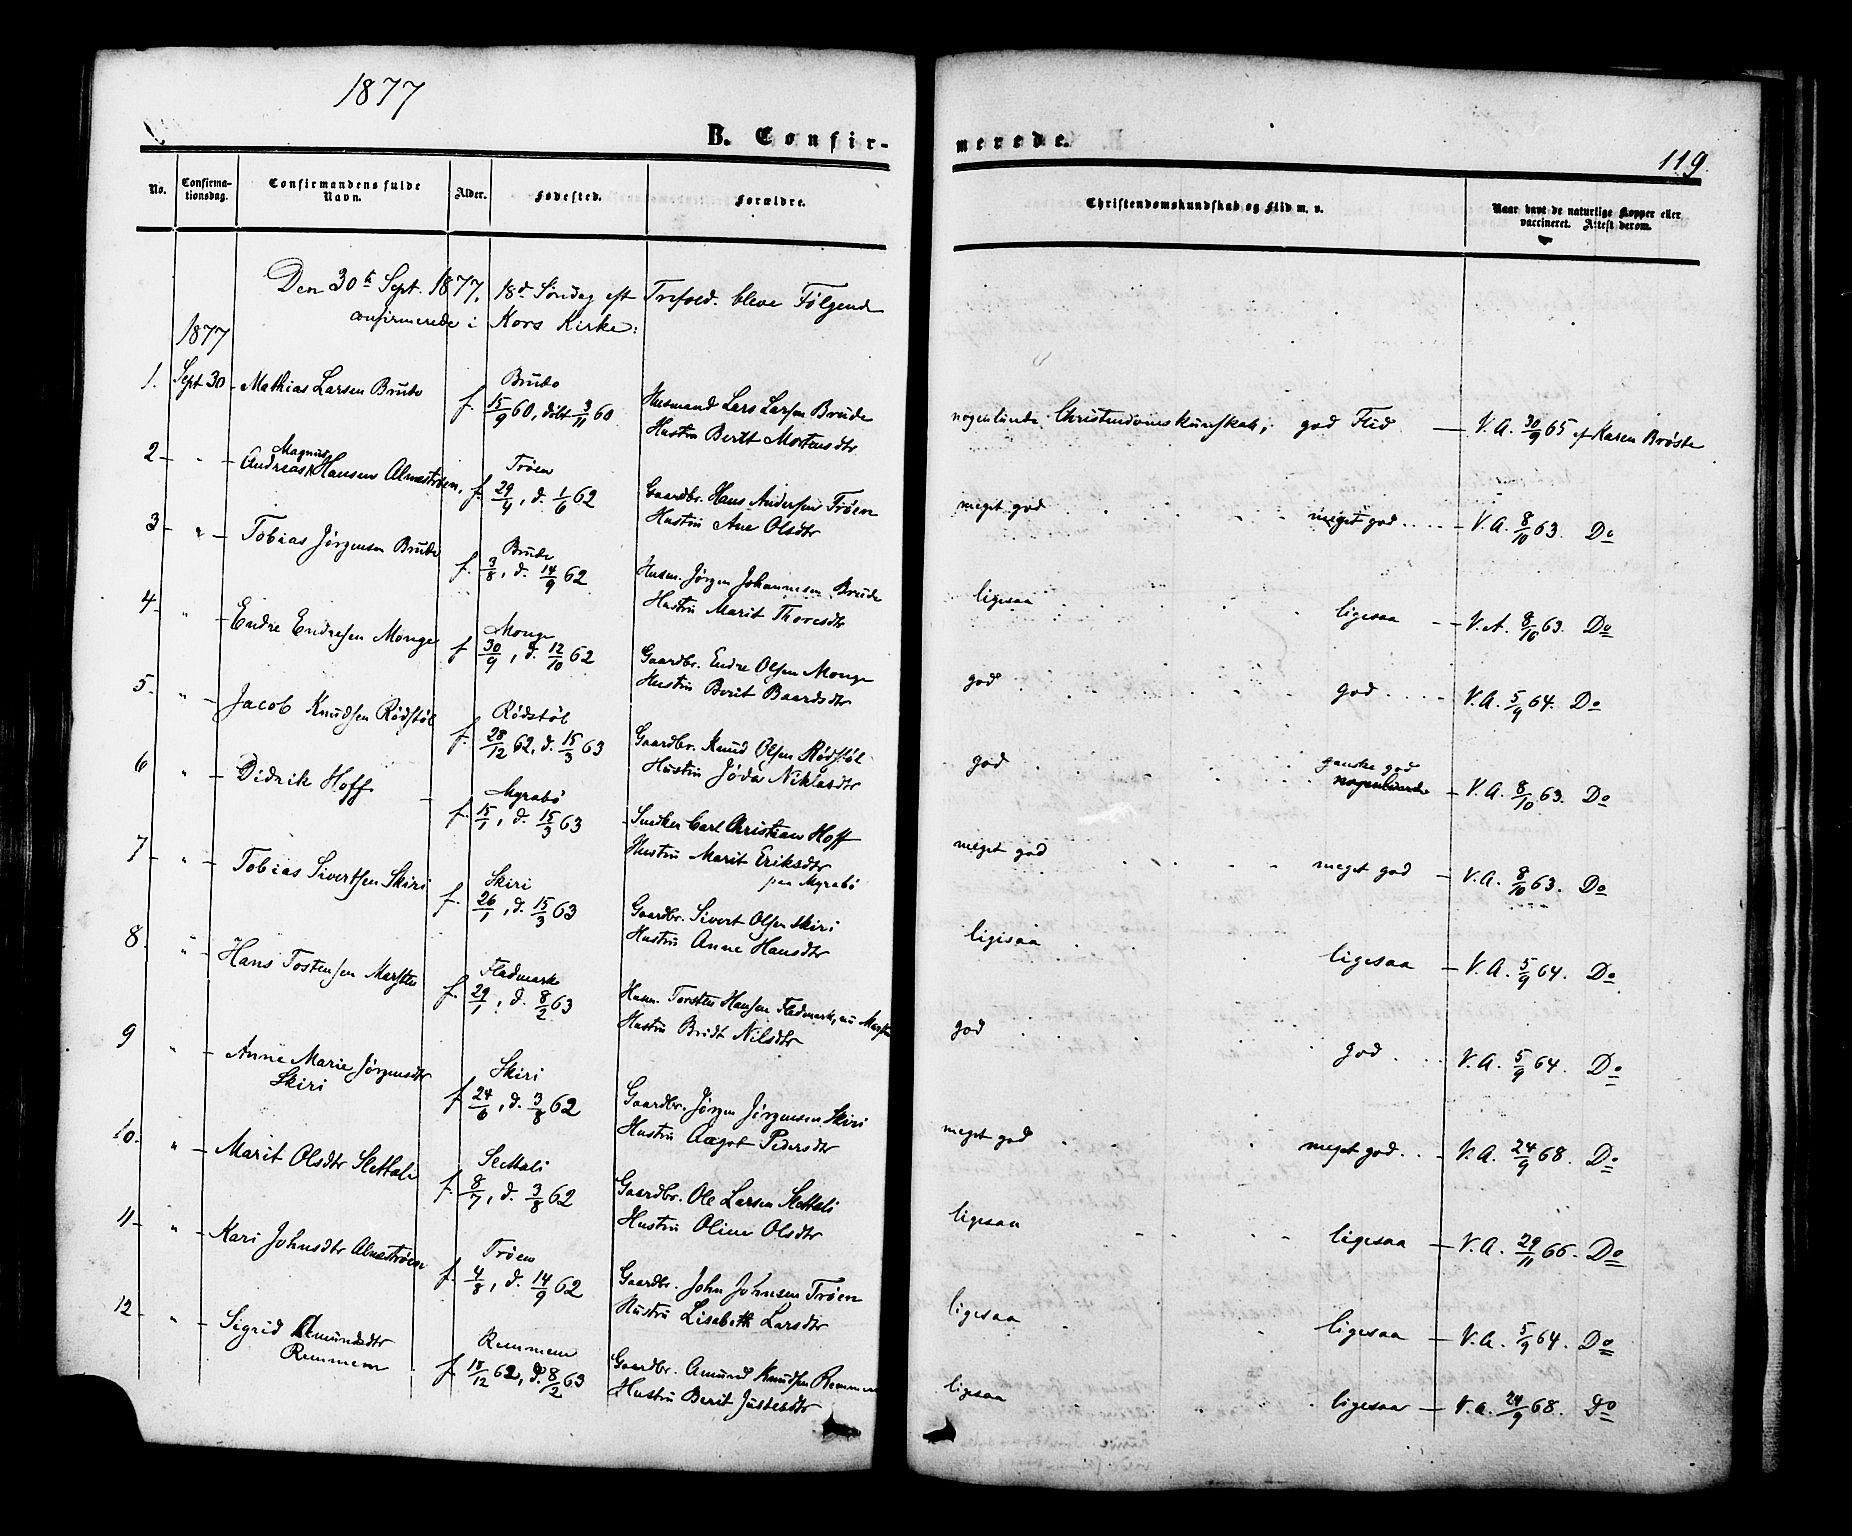 1877
B. Confirmerede.
119.
No. Confirmationsdag. Confirmandens fulde Navn. Alder. Fødested. Forældre. Christendomskundskab og Flid m. v. Naar havt de naturlige Kopper eller vaccineret. Attest derom.
Den 30te Sept. 1877, 18d Søndag eft Trefold. bleve Følgende
confirmerede i Kors Kirke:
1877
1. Sept 30 - Mathias Larsen Brude
Brude
f. 15/9 60, døbt 3/11 60
Husmand Lars Larsen Brude
Hustru Berit Mortensdtr
nogenlunde Christendomskundskab, god Flid - V.A. 30/9 65 af Karen Brøste
2 - " - Andreas Magnus Hansen Almestrøen,
Trøen
f. 29/4, d. 1/6 62
Gaardbr. Hans Andersen Trøen
Hustru Ane Olsdtr
meget god . . . . meget god . . . . - V.A. 8/10 63. Do
3 - " - Tobias Jørgensen Brude
Brude
f. 3/8, d. 14/9 62
Husm. Jørgen Johannesen Brude
Hustru Marit Thoresdtr
ligesaa . . . . ligesaa - V.A. 8/10 63. Do
4. " - Endre Endresen Monge
Monge
f 30/9, d. 12/10 62
Gaardbr. Endre Olsen Monge
Hustru Berit Baardsdtr
god . . . . god . . . . - V.A. 5/9 64. Do
5. " - Jacob Knudsen Rødstøl
Rødstøl
f. 28/12 62, d. 15/3 63
Gaardbr. Knud Olsen Rødstøl
Hustru Jøda Niklasdtr
god . . . . ganske god
nogenlunde - V.A. 8/10 63. Do
6 " - Didrik Hoff
Myrabø
f. 15/1, d. 15/3 63
Snedker Carl Christian Hoff
Hustru Marit Eriksdtr
paa Myrabø
meget god . . . . meget god - V.A. 8/10 63. Do
7 " - Tobias Sivertsen Skiri
Skiri
f. 26/1, d. 15/3 63
Gaardbr. Sivert Olsen Skiri
Hustru Anne Hansdtr
ligesaa . . . . ligesaa - V.A. 5/9 64. Do
8. " - Hans Tostensen Marsten
Fladmark
f. 29/1, d. 8/2 63
Husm. Torsten Hansen Fladmark, nu Marsten
Hustru Bridt Nilsdtr
god . . . . god . . . V.A. 5/9 64. Do
9 " - Anne Marie Jørgensdtr
Skiri
Skiri
f 24/6, d. 3/8 62
Gaardbr. Jørgen Jørgensen Skiri
Hustru Aagot Pedersdtr
meget god . . . . meget god . . . V.A. 24/9 68. Do
10. " - Marit Olsdtr Slettali
Slettali
f. 8/7, d. 3/8 62
Gaardbr. Ole Larsen Slettali
Hustru Oline Olsdtr
ligesaa . . . . ligesaa - V.A. 29/11 66. Do
11 - " - Kari Johnsdtr Almestrøen
Trøen
f. 4/8, d. 14/9 62
Gaardbr. John Johnsen Trøen
Hustru Lisabeth Larsdtr
ligesaa . . . . ligesaa - V.A. 5/9 64. Do
12 - " - Sigrid Amundsdtr
Remmem
Remmem
f. 18/12 62, d. 8/2 63
Gaardbr. Amund Knudsen Remmem
Hustru Berit Justesdtr
ligesaa . . . . ligesaa - V.A. 24/9 68. Do